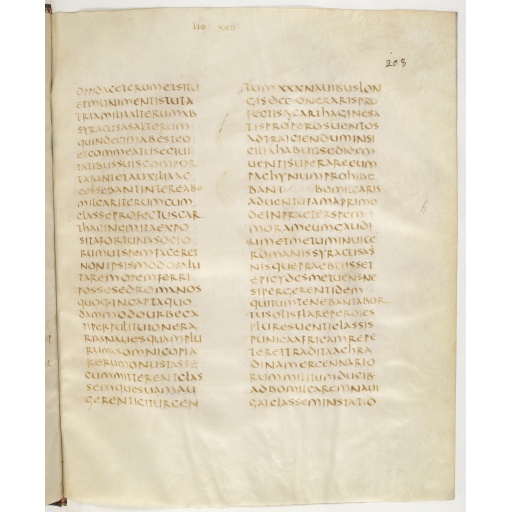 LIB XXV
208
OPPIDA CETERUM ET SITU
ET MUNIMENTIS TUTA
TRIA MILIA ALTERUM AB
SYRACUSAS ALTERUM
QUINDECIM ABESTEO
ET COMMEATUS E CIUI
TATIBUS SUIS COMPOR
TABANT ET AUXILIA AC
CESSEBANT INTEREA BO
MILCAR ITERUM CUM
CLASSE PROFECTUS CAR
THAGINEM ITA EXPO
SITA FORTUNA SOCIO
RUM UT SPEM FACERET
NON IPSIS MODO SALU
TAREM OPEM FERRI
POSSE SED ROMANOS
QUOQ IN CAPTA QUO
DAMMODO URBE CA
PI PERPULIT UT ONERA
RIAS NAUES QUAM PLU
RUMAS OMNI COPIA
RERUM ONUSTAS SE
CUM MITTERENT CLAS
SEMQUE SUAM AU
GERENT IGITUR CEN
TUM XXX NAUIBUS LON
GIS DCC ONERARIS PRO
FECTUS A CARTHAGINE SA
TIS PROPEROS UENTOS
AD TRAICIENDUM IN SI
CILIA HABUIT SED IDEM
UENTI SUPERARE EUM
PACHYNUM PROHIBE
BANT BOMILCARIS
ADUENTU FAMA PRIMO
DEIN PRAETER SPEM
MORA MEUM GAUDI
UM ET METUM INUICE
ROMANIS SYRACUSAS
NISQUE PRAEBUISSET
EPICYDES METUENS NE
SI PERGERENT IDEM
QUI TUM TENEBANT ABUR
TU SOLIS FLARE PER DIES
PLURES UENTI CLASSIS
PUNICA AFRICAM REPE
TERET TRADITA ACHRA
DINA MERCENNARIO
RUM MILITUM DUCIB
AD BOMILCAREM NAUI
GAT CLASSEM IN STATIO